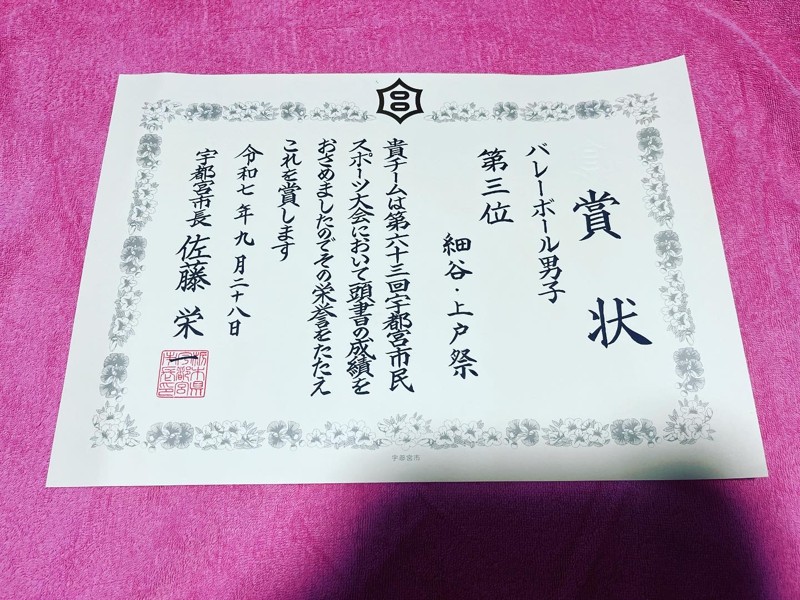 賞状
バレーボール男子
第三位
細谷・上戸祭
貴チームは第六十三回宇都宮市民
スポーツ大会において頭書の成績を
おさめましたのでその栄誉をたたえ
これを賞します
令和七年九月二十八日
宇都宮市長 佐藤栄一
栃木県宇都宮市長之印
宇都宮市